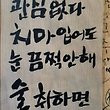 관심 없다
치마 입어도
눈 끔쩍 안해
술 취하면